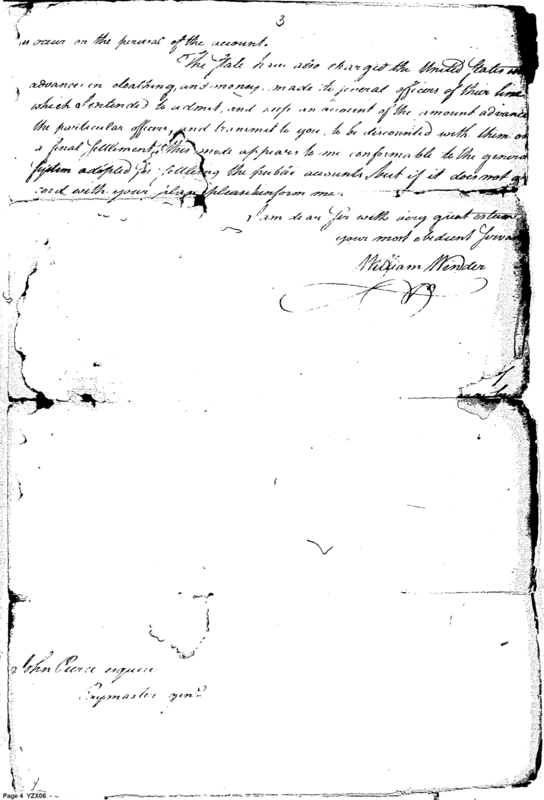 3
occur in the perusal of the account.
The State have also charged the United States
advances in cloathing, and money, made to several officers of their line
which I intended to admit, and keep an account of the amount
the particular officers, and transmit to you, to be discounted with them on
a final settlement; this mode appears to me conformable to the
System adopted for settling the public accounts, but if it does not
cord with your plan please inform me.
I am dear Sir with very great
your most obedient
William Winder
John Pierce esquire
Paymaster genl
Page 4 YZX06